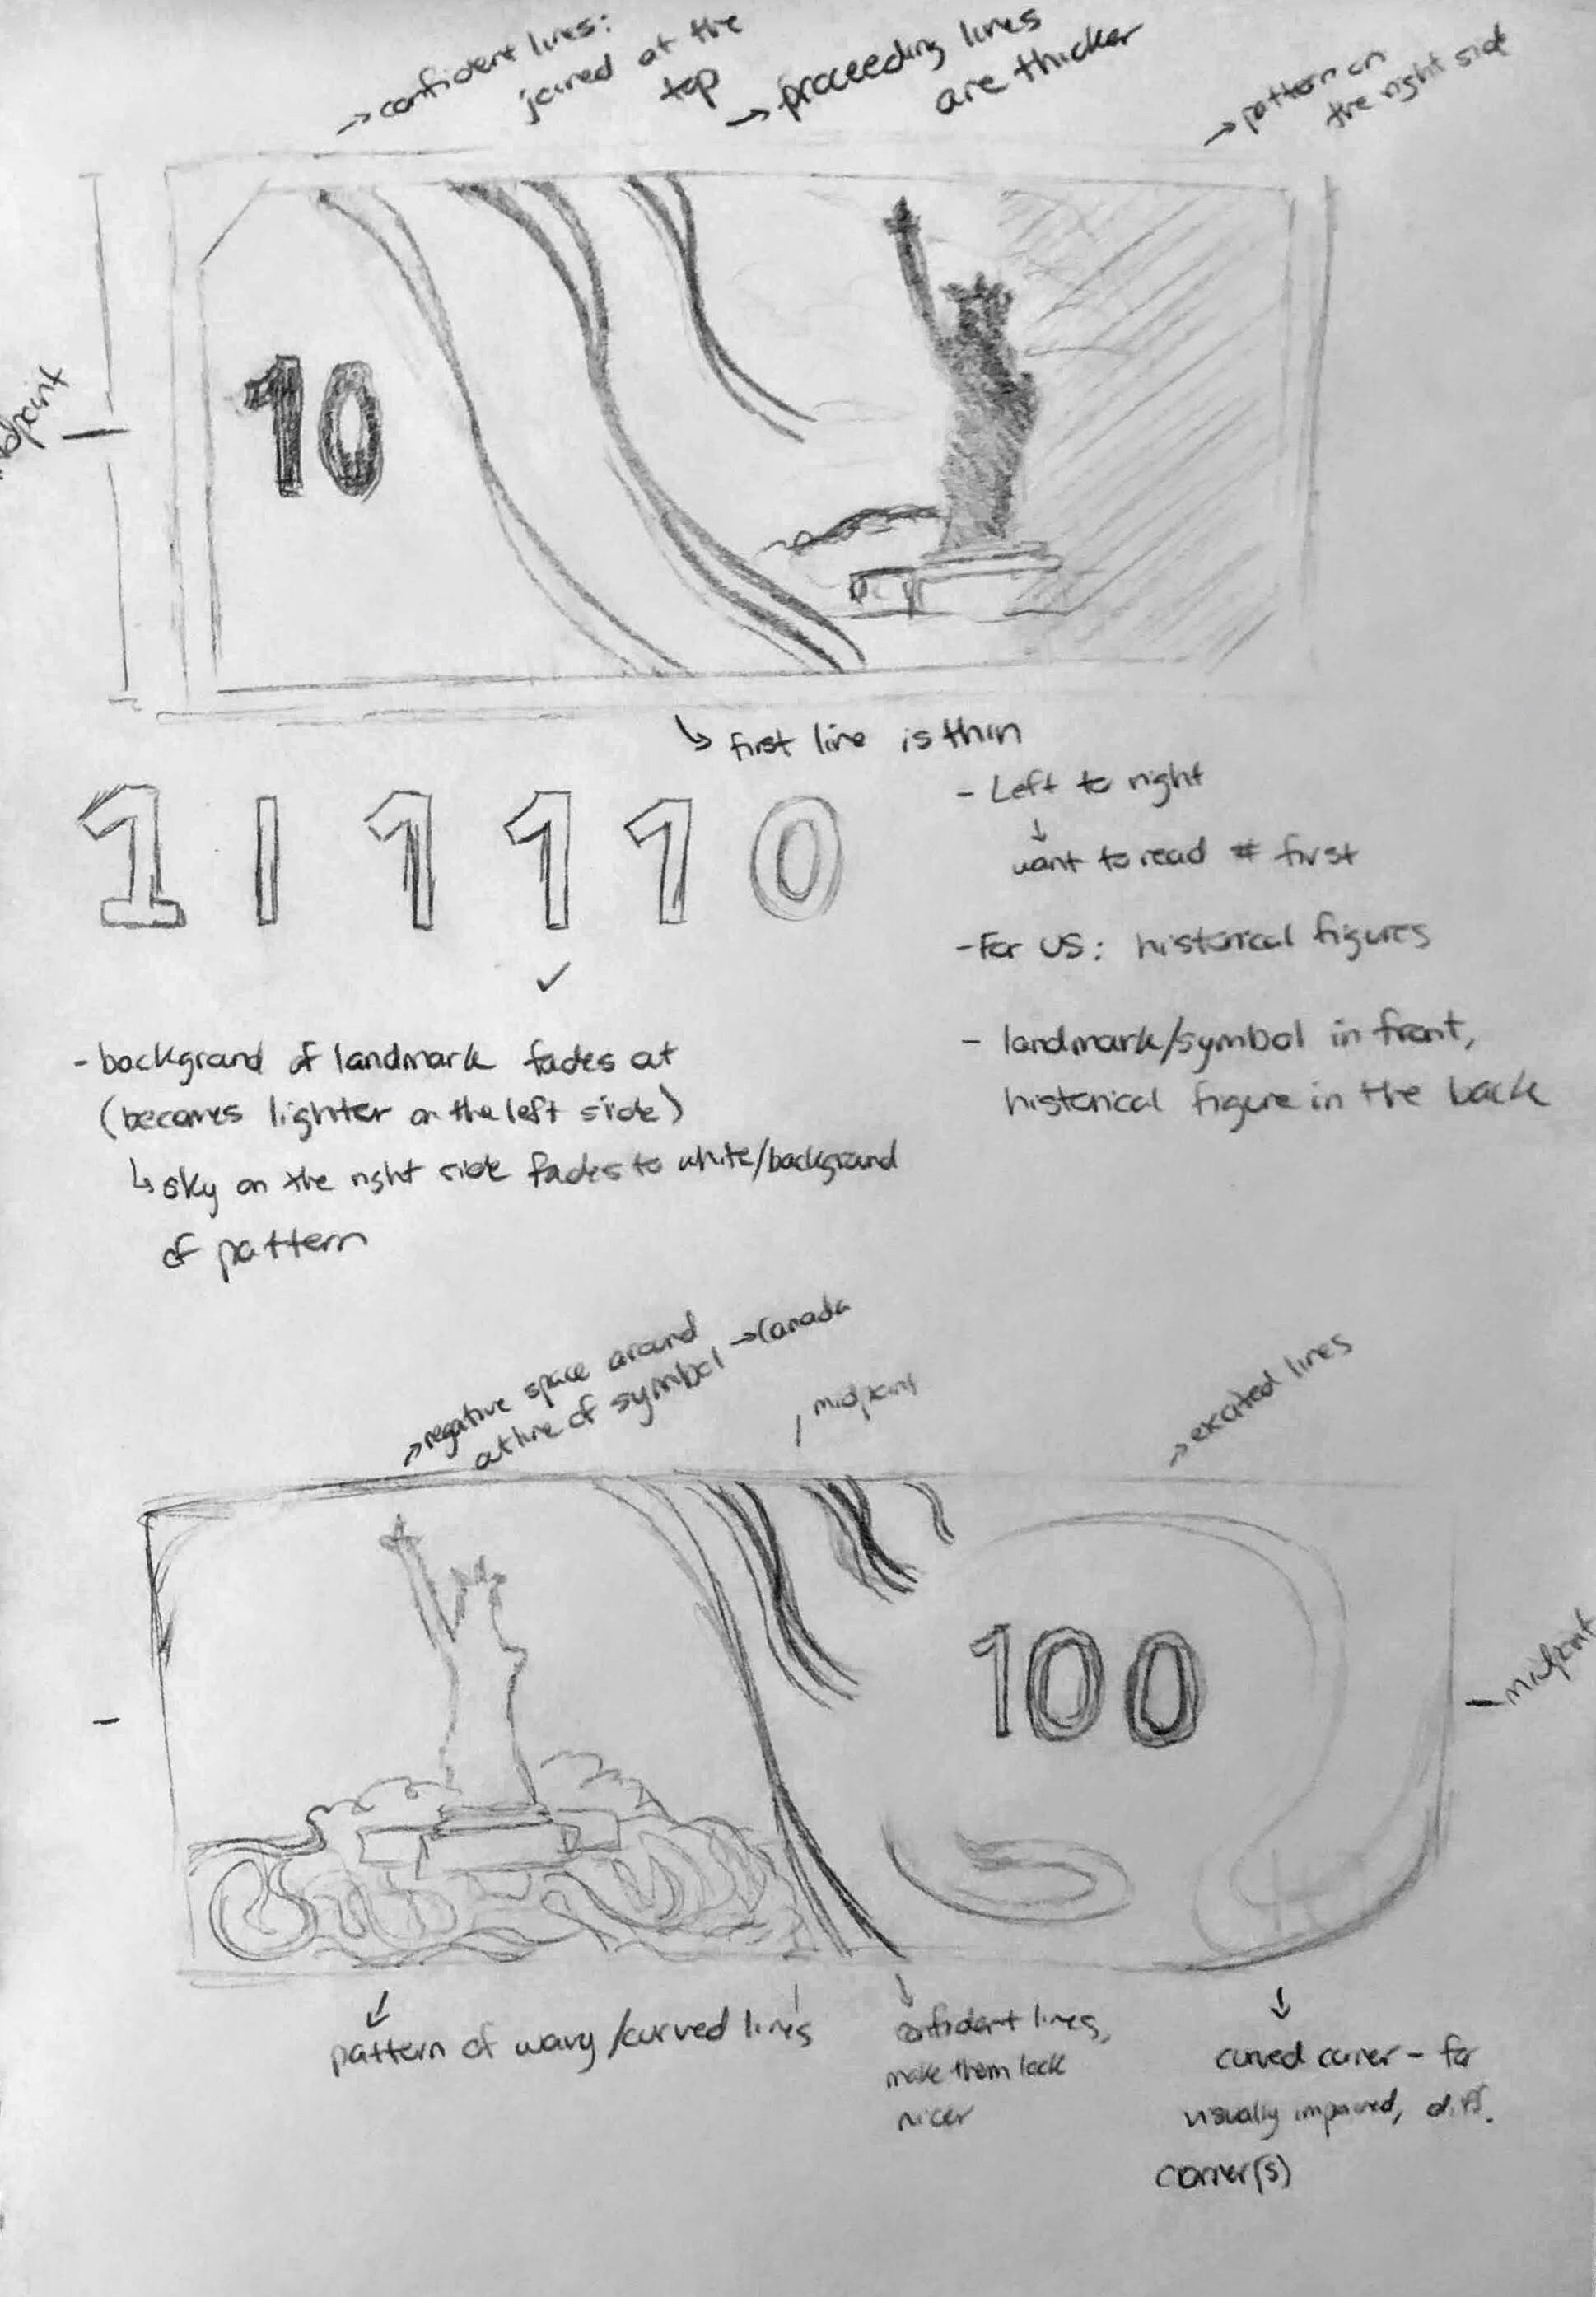 → confident lines:
joined at the
top
→ proceeding lines
are thicker
→ pattern on
the right side
10
↳ first line is thin
1 1 1 1 1 0
✓
- Left to right
↓
want to read # first
- For US: historical figures
- landmark/symbol in front,
historical figure in the back
- background of landmark fades at
(becomes lighter on the left side)
↳ sky on the right side fades to white/background
of pattern
→ negative space around
outline of symbol → Canada
midpoint
→ excited lines
100
midpoint
pattern of wavy/curved lines
confident lines,
make them look
nicer
curved corner - for
visually impaired, diff.
corner(s)